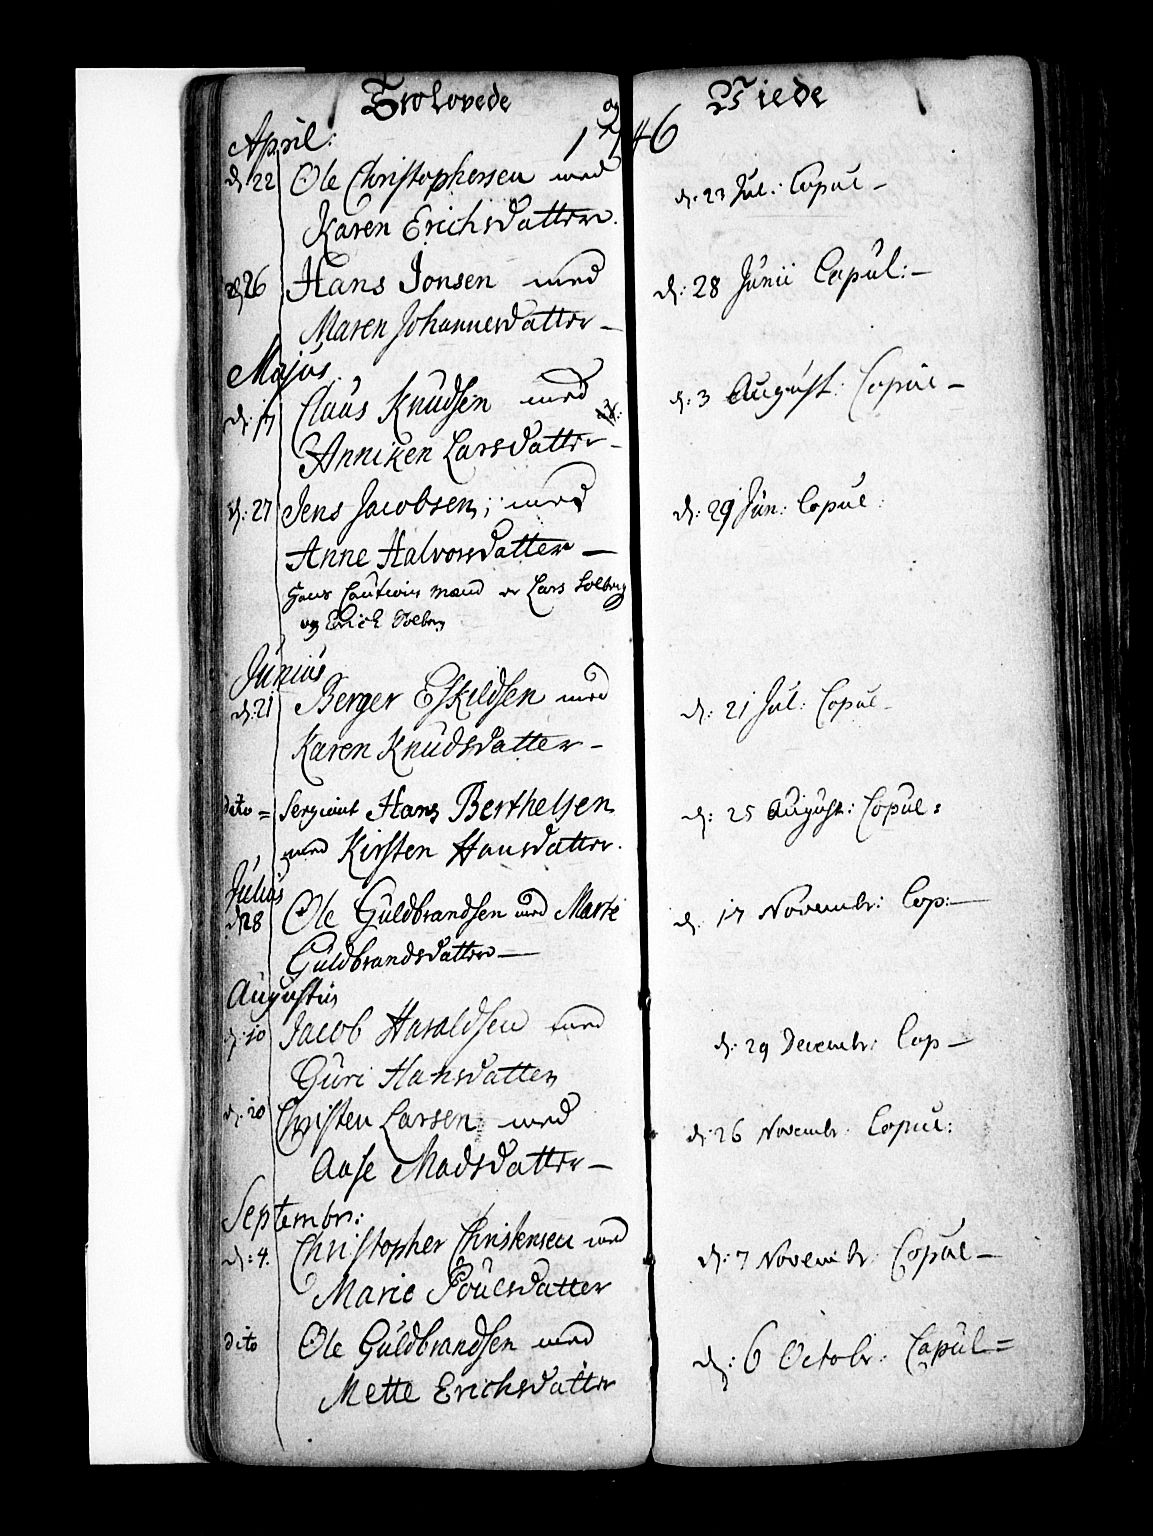 Trolovede og Viede
1746
April:
d: 22 Ole Christophersen med d: 23 Jul: Copul –
Karen Erichsdatter.
d: 26 Hans Jonsen med d: 28 Junii Copul: –
Maren Johannesdatter –
Majus
d: 17 Claus Knudsen med d: 3 August: Copul –
Anniken Larsdatter –
d: 27 Jens Jacobsen, med d: 29 Jun: Copul:
Anne Halvorsdatter –
Hans Cautions mænd er Lars Solberg
og Erick Solberg
Junius
d: 21 Berger Eskildsen med d: 21 Jul: Copul –
Karen Knudsdatter –
dito = Sergiant Hans Berthelsen d: 25 August: Copul:
med Kirsten Hansdatter.
Julius
d 28 Ole Guldbrandsen med Marte d. 17 Novembr: Cop: –
Guldbrandsdatter –
Augustus
d: 10 Jacob Haraldsen med d: 29 Decembr: Cop –
Guri Hansdatter
d: 20 Christen Larsen med d: 26 Novembr: Copul:
Aase Madsdatter –
Septembr:
d: 4. Christopher Christensen med d: 7 Novembr: Copul –
Marie Poulsdatter
dito Ole Guldbrandsen med d: 6 Octobr: Copul =
Mette Erichsdatter